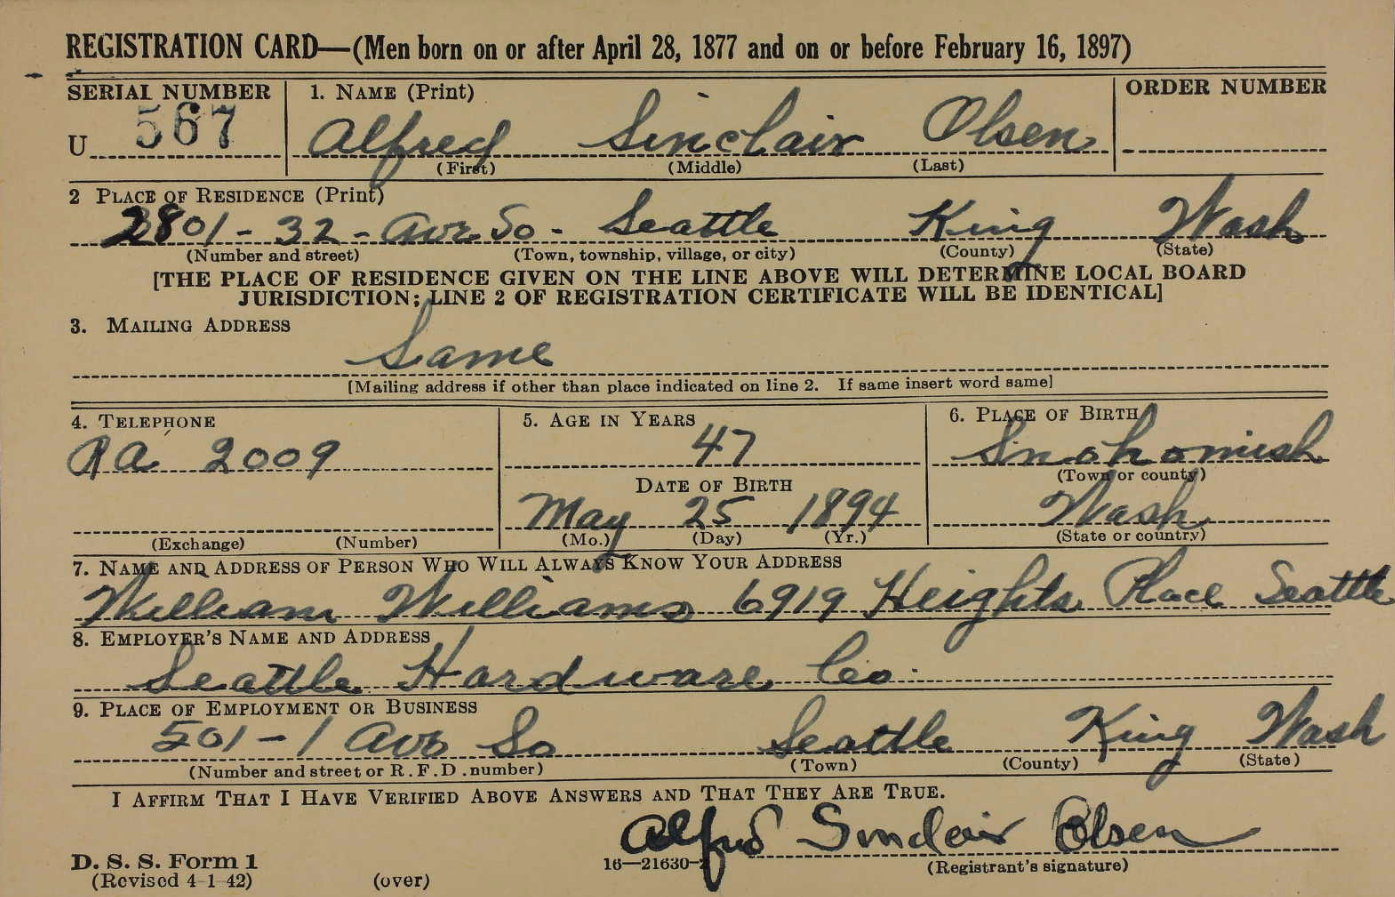 REGISTRATION CARD—(Men born on or after April 28, 1877 and on or before February 16, 1897)
SERIAL NUMBER 1. NAME (Print) ORDER NUMBER
U 567 Alfred Sinclair Olsen
(First) (Middle) (Last)
2 PLACE OF RESIDENCE (Print)
2801 - 32 - Ave So - Seattle King Wash
(Number and street) (Town, township, village, or city) (County) (State)
[THE PLACE OF RESIDENCE GIVEN ON THE LINE ABOVE WILL DETERMINE LOCAL BOARD
JURISDICTION; LINE 2 OF REGISTRATION CERTIFICATE WILL BE IDENTICAL]
3. MAILING ADDRESS
Same
[Mailing address if other than place indicated on line 2. If same insert word same]
4. TELEPHONE 5. AGE IN YEARS 6. PLACE OF BIRTH
RA 2009 47 Snohomish
(Town or county)
DATE OF BIRTH
May 25 1894 Wash
(Exchange) (Number) (Mo.) (Day) (Yr.) (State or country)
7. NAME AND ADDRESS OF PERSON WHO WILL ALWAYS KNOW YOUR ADDRESS
William Williams 6919 Heights Place Seattle
8. EMPLOYER'S NAME AND ADDRESS
Seattle Hardware Co.
9. PLACE OF EMPLOYMENT OR BUSINESS
501 - 1 Ave So Seattle King Wash
(Number and street or R. F. D. number) (Town) (County) (State)
I AFFIRM THAT I HAVE VERIFIED ABOVE ANSWERS AND THAT THEY ARE TRUE.
Alfred Sinclair Olsen
D. S. S. Form 1 16—21630-2 (Registrant's signature)
(Revised 4-1-42) (over)